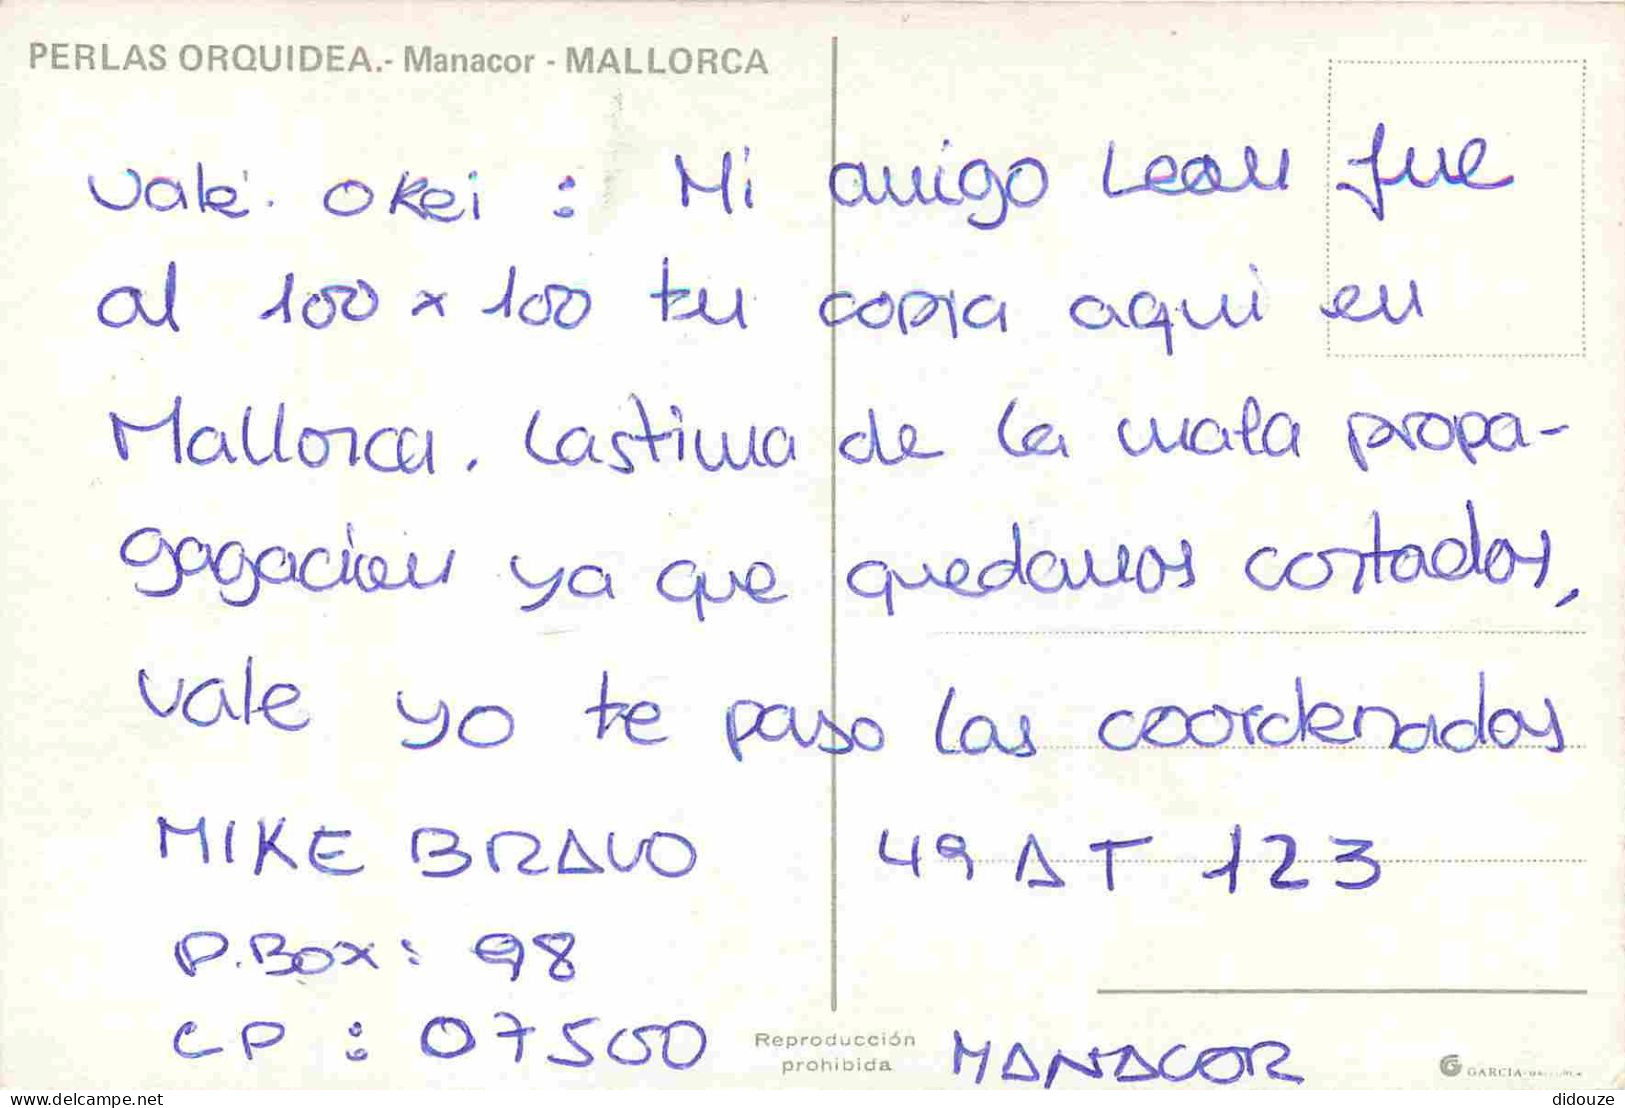 PERLAS ORQUIDEA.- Manacor - MALLORCA
Vale. okei : Mi amigo Leon fue
al 100 x 100 tu copia aqui en
Mallorca. Lastima de la mala propa-
gagacion ya que quedamos cortados,
vale yo te paso las coordenadas
MIKE BRAVO 49 AT 123
P.BOX: 98
CP : 07500 MANACOR
Reproducción
prohibida
GARCIA
delcampe.net
didouze